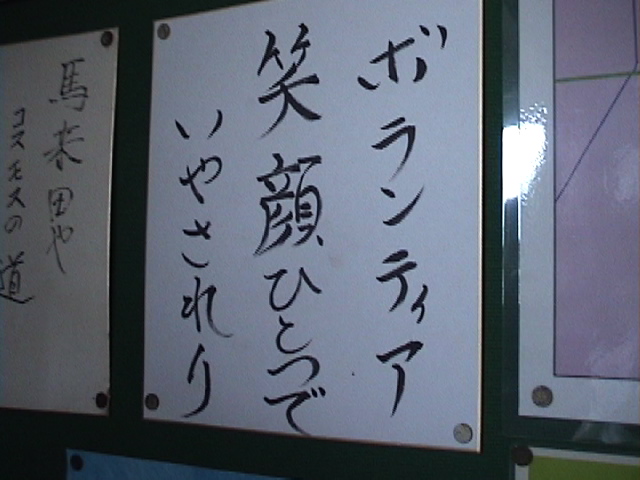 ボランティア
笑顔ひとつで
いやされり
馬来田や
コスモスの道